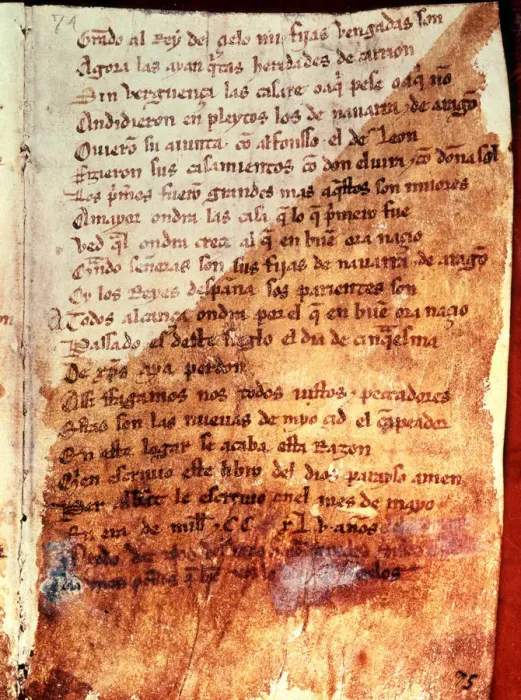 74
Grado al Rey del çielo mis fijas vengadas son
Agora las ayan q̃tas heredades de carrion
Sin verguença las casare o aq̃ pese o aq̃ nõ
Andidieron en pleytos los de nauarra ⁊ de aragõ
Ouierõ su aiunta cõ alfonsso el de Leon
Fizieron sus casamientos cõ don eluira ⁊ cõ doña sol
Los p̃meros fuerõ grandes mas aq̃stos son miiores
A mayor ondra las casa q̃ lo q̃ p̃mero fue
Ved q̃l ondra creçe al q̃ en buẽ ora naçio
Q̃ndo señoras son sus fijas de nauarra ⁊ de aragõ
Oy los Reyes despaña sos parientes son
A Todos alcança ondra por el q̃ en buẽ ora naçio
Passado es deste sieglo el dia de cinq̃esma
De xp̃s aya perdon
Assi ffagamos nos todos iustos ⁊ peccadores
Estas son las nueuas de myo çid el cãpeador
En este logar se acaba esta Razon
Quien escriuio este libro del dios parayso amen
Per abbat le escriuio enel mes de mayo
En era de mill ⁊ CC xL v años
75